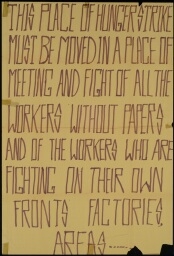 THIS PLACE OF HUNGERSTRIKE
MUST BE MOVED IN A PLACE OF
MEETING AND FIGHT OF ALL THE
WORKERS WITHOUT PAPERS
AND OF THE WORKERS WHO ARE
FIGHTING ON THEIR OWN
FRONTS FACTORIES,
AREAS